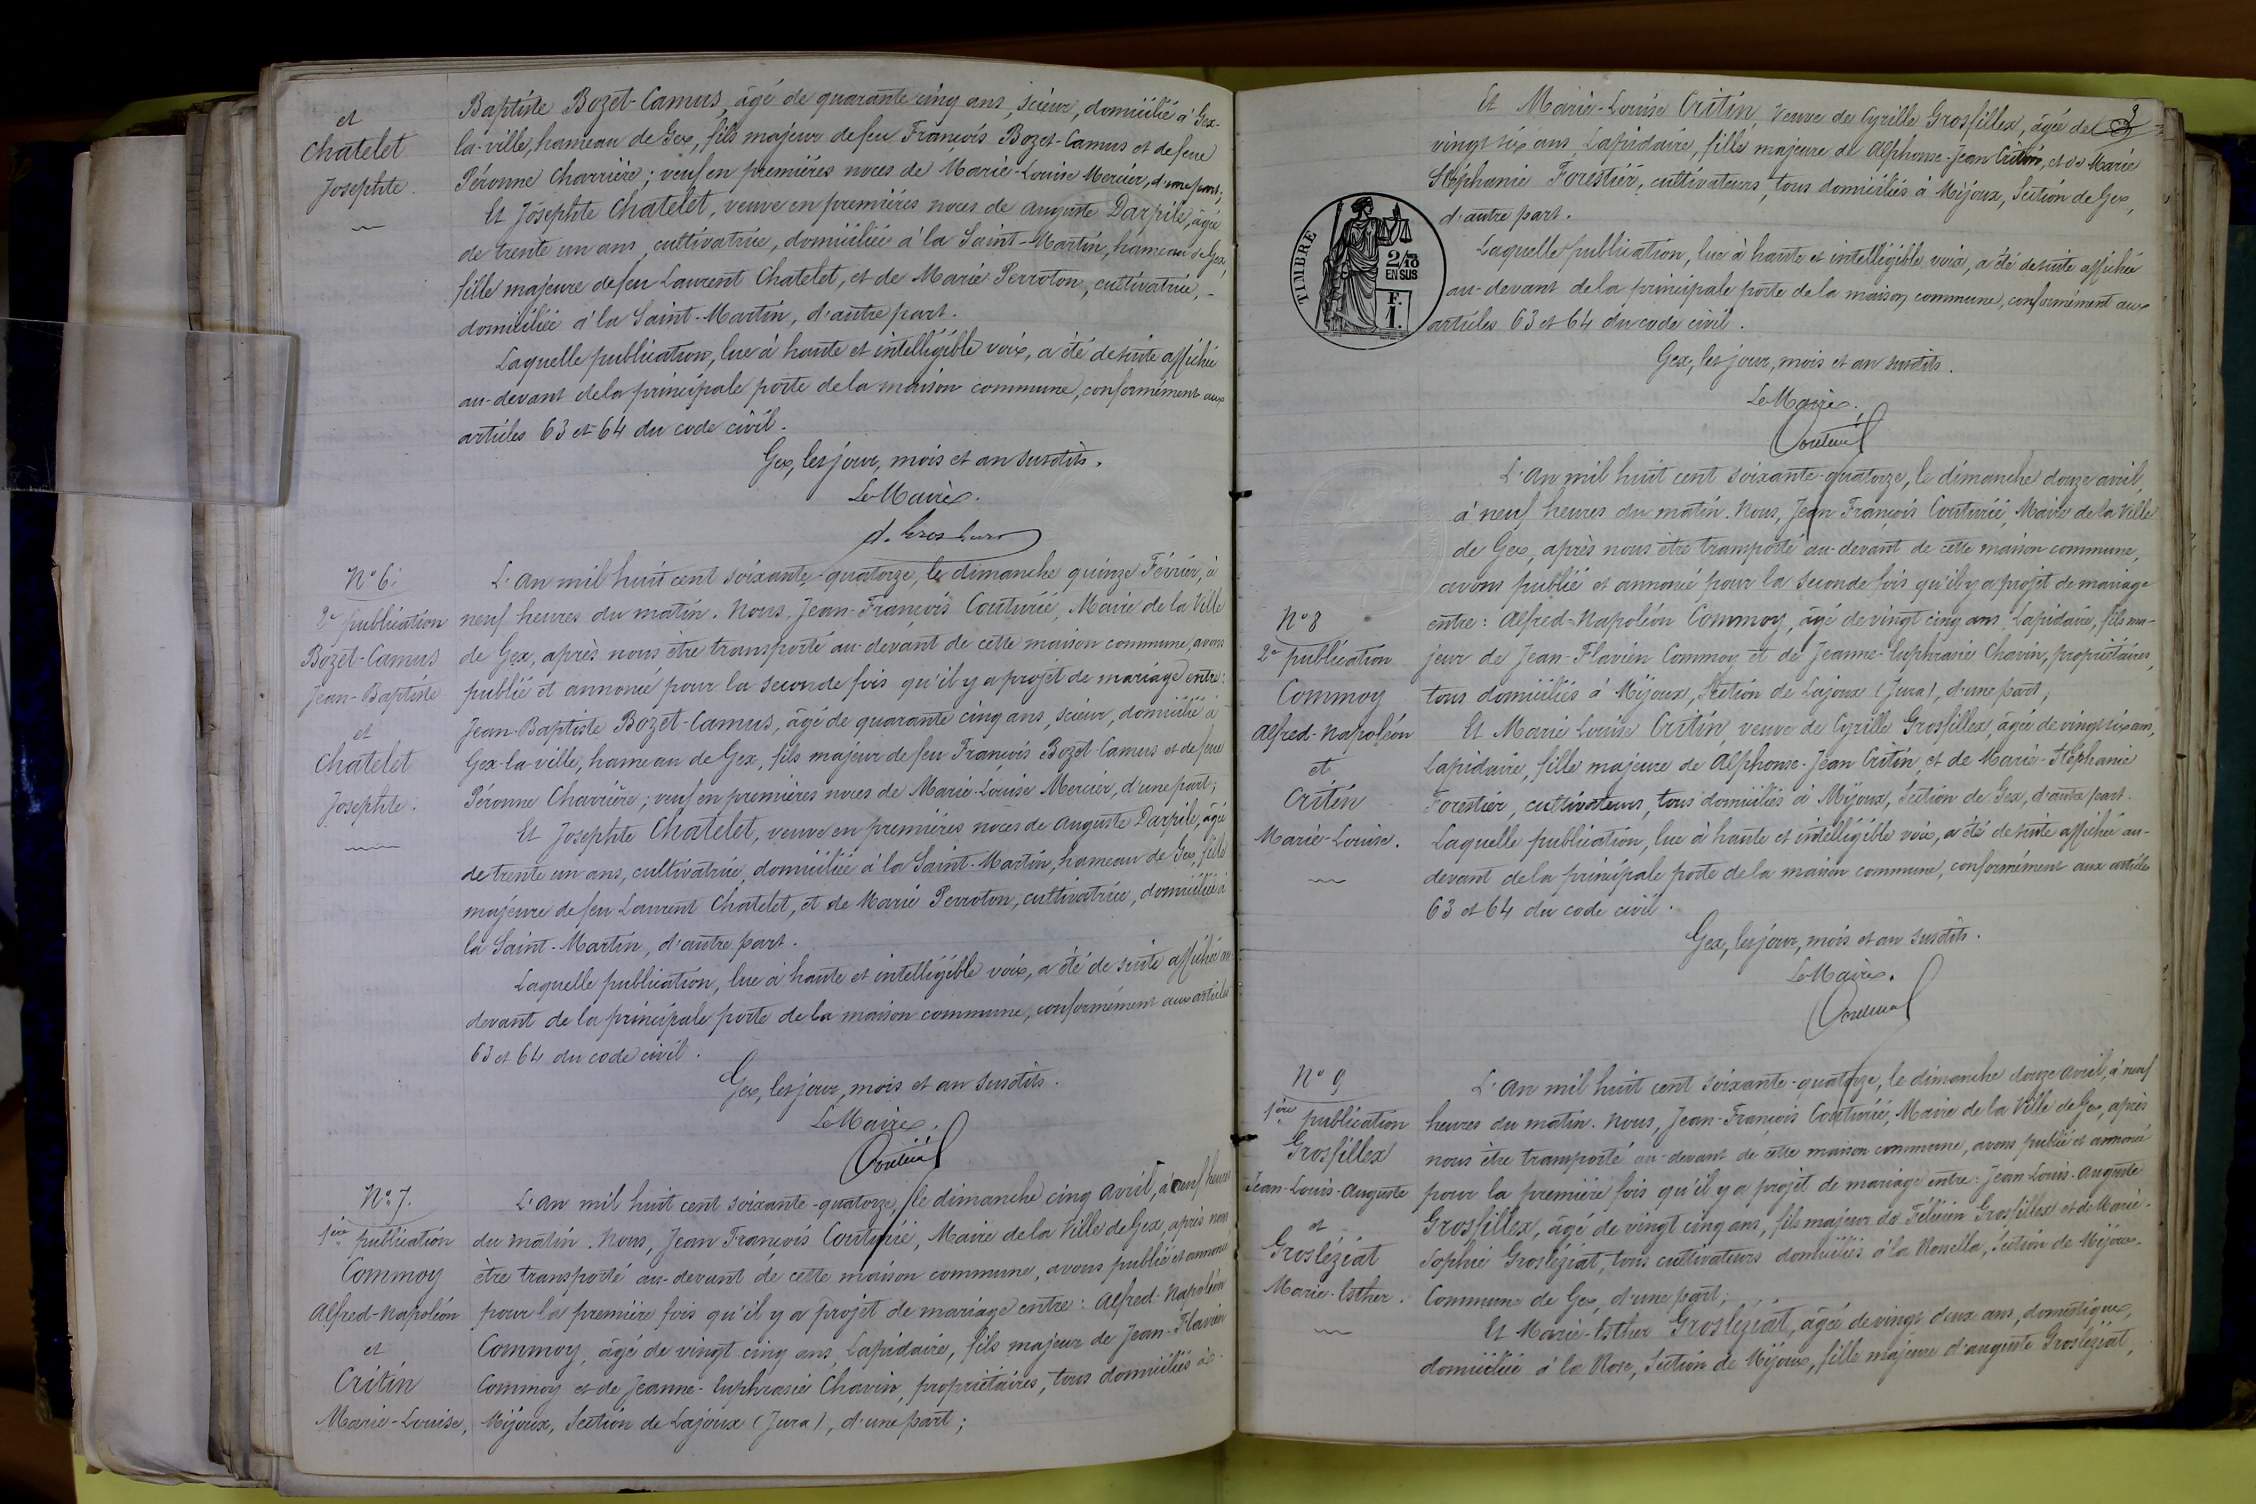 et
Chatelet
Josephte.
Baptiste Bozet-Camus, âgé de quarante cinq ans, scieur, domicilié à Gex-
la-ville, hameau de Gex, fils majeur de feu François Bozet-Camus et de feue
Péronne Charrière; veuf en premières noces de Marie-Louise Mercier, d'une part;
Et Josephte Chatelet, veuve en premières noces de Auguste Darpile, âgée
de trente un ans, cultivatrice, domiciliée à la Saint-Martin, hameau de Gex,
fille majeure de feu Laurent Chatelet, et de Marie Perroton, cultivatrice, -
domiciliée à la Saint-Martin, d'autre part.
Laquelle publication, lue à haute et intelligible voix, a été de suite affichée
au-devant de la principale porte de la maison commune, conformément aux
articles 63 et 64 du code civil.
Gex, les jour, mois et an susdits.
Le Maire.
N° 6.
2e publication
Bozet-Camus
Jean-Baptiste
et
Chatelet
Josephte.
L'an mil huit cent soixante-quatorze, le dimanche quinze Février, à
neuf heures du matin. Nous, Jean-François Couturié, Maire de la Ville
de Gex, après nous être transporté au-devant de cette maison commune, avons
publié et annoncé pour la seconde fois qu'il y a projet de mariage entre:
Jean-Baptiste Bozet-Camus, âgé de quarante cinq ans, scieur, domicilié à
Gex-la-ville, hameau de Gex, fils majeur de feu François Bozet-Camus et de feue
Péronne Charrière; veuf en premières noces de Marie-Louise Mercier, d'une part;
Et Josephte Chatelet, veuve en premières noces de Auguste Darpile, âgée
de trente un ans, cultivatrice, domiciliée à la Saint-Martin, hameau de Gex, fille
majeure de feu Laurent Chatelet, et de Marie Perroton, cultivatrice, domiciliée à
la Saint-Martin, d'autre part.
Laquelle publication, lue à haute et intelligible voix, a été de suite affichée au-
devant de la principale porte de la maison commune, conformément aux articles
63 et 64 du code civil.
Gex, les jour, mois et an susdits.
Le Maire.
Couturié
N° 7.
1ère publication
Commoy
Alfred-Napoléon
et
Critin
Marie-Louise.
L'an mil huit cent soixante-quatorze, le dimanche cinq avril, à neuf heures
du matin. Nous, Jean François Couturié, Maire de la Ville de Gex, après nous
être transporté au-devant de cette maison commune, avons publié et annoncé
pour la première fois qu'il y a projet de mariage entre: Alfred-Napoléon
Commoy, âgé de vingt cinq ans, Lapidaire, fils majeur de Jean-Flavien
Commoy et de Jeanne-Euphrasie Chavin, propriétaires, tous domiciliés à
Mijoux, Section de Lajoux (Jura), d'une part;
3
Et Marie-Louise Critin, veuve de Cyrille Grosfillex, âgée de
vingt six ans, Lapidaire, fille majeure de Alphonse-Jean Critin, et de Marie
Stéphanie Forestier, cultivateurs, tous domiciliés à Mijoux, Section de Gex,
d'autre part.
TIMBRE
2/10
EN SUS
F.
1.
Laquelle publication, lue à haute et intelligible voix, a été de suite affichée
au-devant de la principale porte de la maison commune, conformément aux
articles 63 et 64 du code civil.
Gex, les jour, mois et an susdits.
Le Maire.
Couturié
N° 8
2e publication
Commoy
Alfred-Napoléon
et
Critin
Marie-Louise.
L'an mil huit cent soixante-quatorze, le dimanche douze avril,
à neuf heures du matin. Nous, Jean François Couturié, Maire de la Ville
de Gex, après nous être transporté au-devant de cette maison commune,
avons publié et annoncé pour la seconde fois qu'il y a projet de mariage
entre: Alfred-Napoléon Commoy, âgé de vingt cinq ans, Lapidaire, fils ma-
jeur de Jean-Flavien Commoy et de Jeanne-Euphrasie Chavin, propriétaires,
tous domiciliés à Mijoux, Section de Lajoux (Jura), d'une part;
Et Marie Louise Critin, veuve de Cyrille Grosfillex, âgée de vingt six ans,
Lapidaire, fille majeure de Alphonse-Jean Critin, et de Marie-Stéphanie
Forestier, cultivateurs, tous domiciliés à Mijoux, Section de Gex, d'autre part.
Laquelle publication, lue à haute et intelligible voix, a été de suite affichée au-
devant de la principale porte de la maison commune, conformément aux articles
63 et 64 du code civil.
Gex, les jour, mois et an susdits.
Le Maire.
Couturié
N° 9
1ère publication
Grosfillex
Jean-Louis-Auguste
et
Grosléziat
Marie-Esther.
L'an mil huit cent soixante-quatorze, le dimanche douze avril, à neuf
heures du matin. Nous, Jean-François Couturié, Maire de la Ville de Gex, après
nous être transporté au-devant de cette maison commune, avons publié et annoncé
pour la première fois qu'il y a projet de mariage entre: Jean-Louis-Auguste
Grosfillex, âgé de vingt cinq ans, fils majeur de Félicien Grosfillex et de Marie-
Sophie Grosléziat, tous cultivateurs domiciliés à la Section de Mijoux-
Commune de Gex, d'une part;
Et Marie-Esther Grosléziat, âgée de vingt deux ans, domestique,
domiciliée à la Rose, Section de Mijoux, fille majeure d'Auguste Grosléziat,